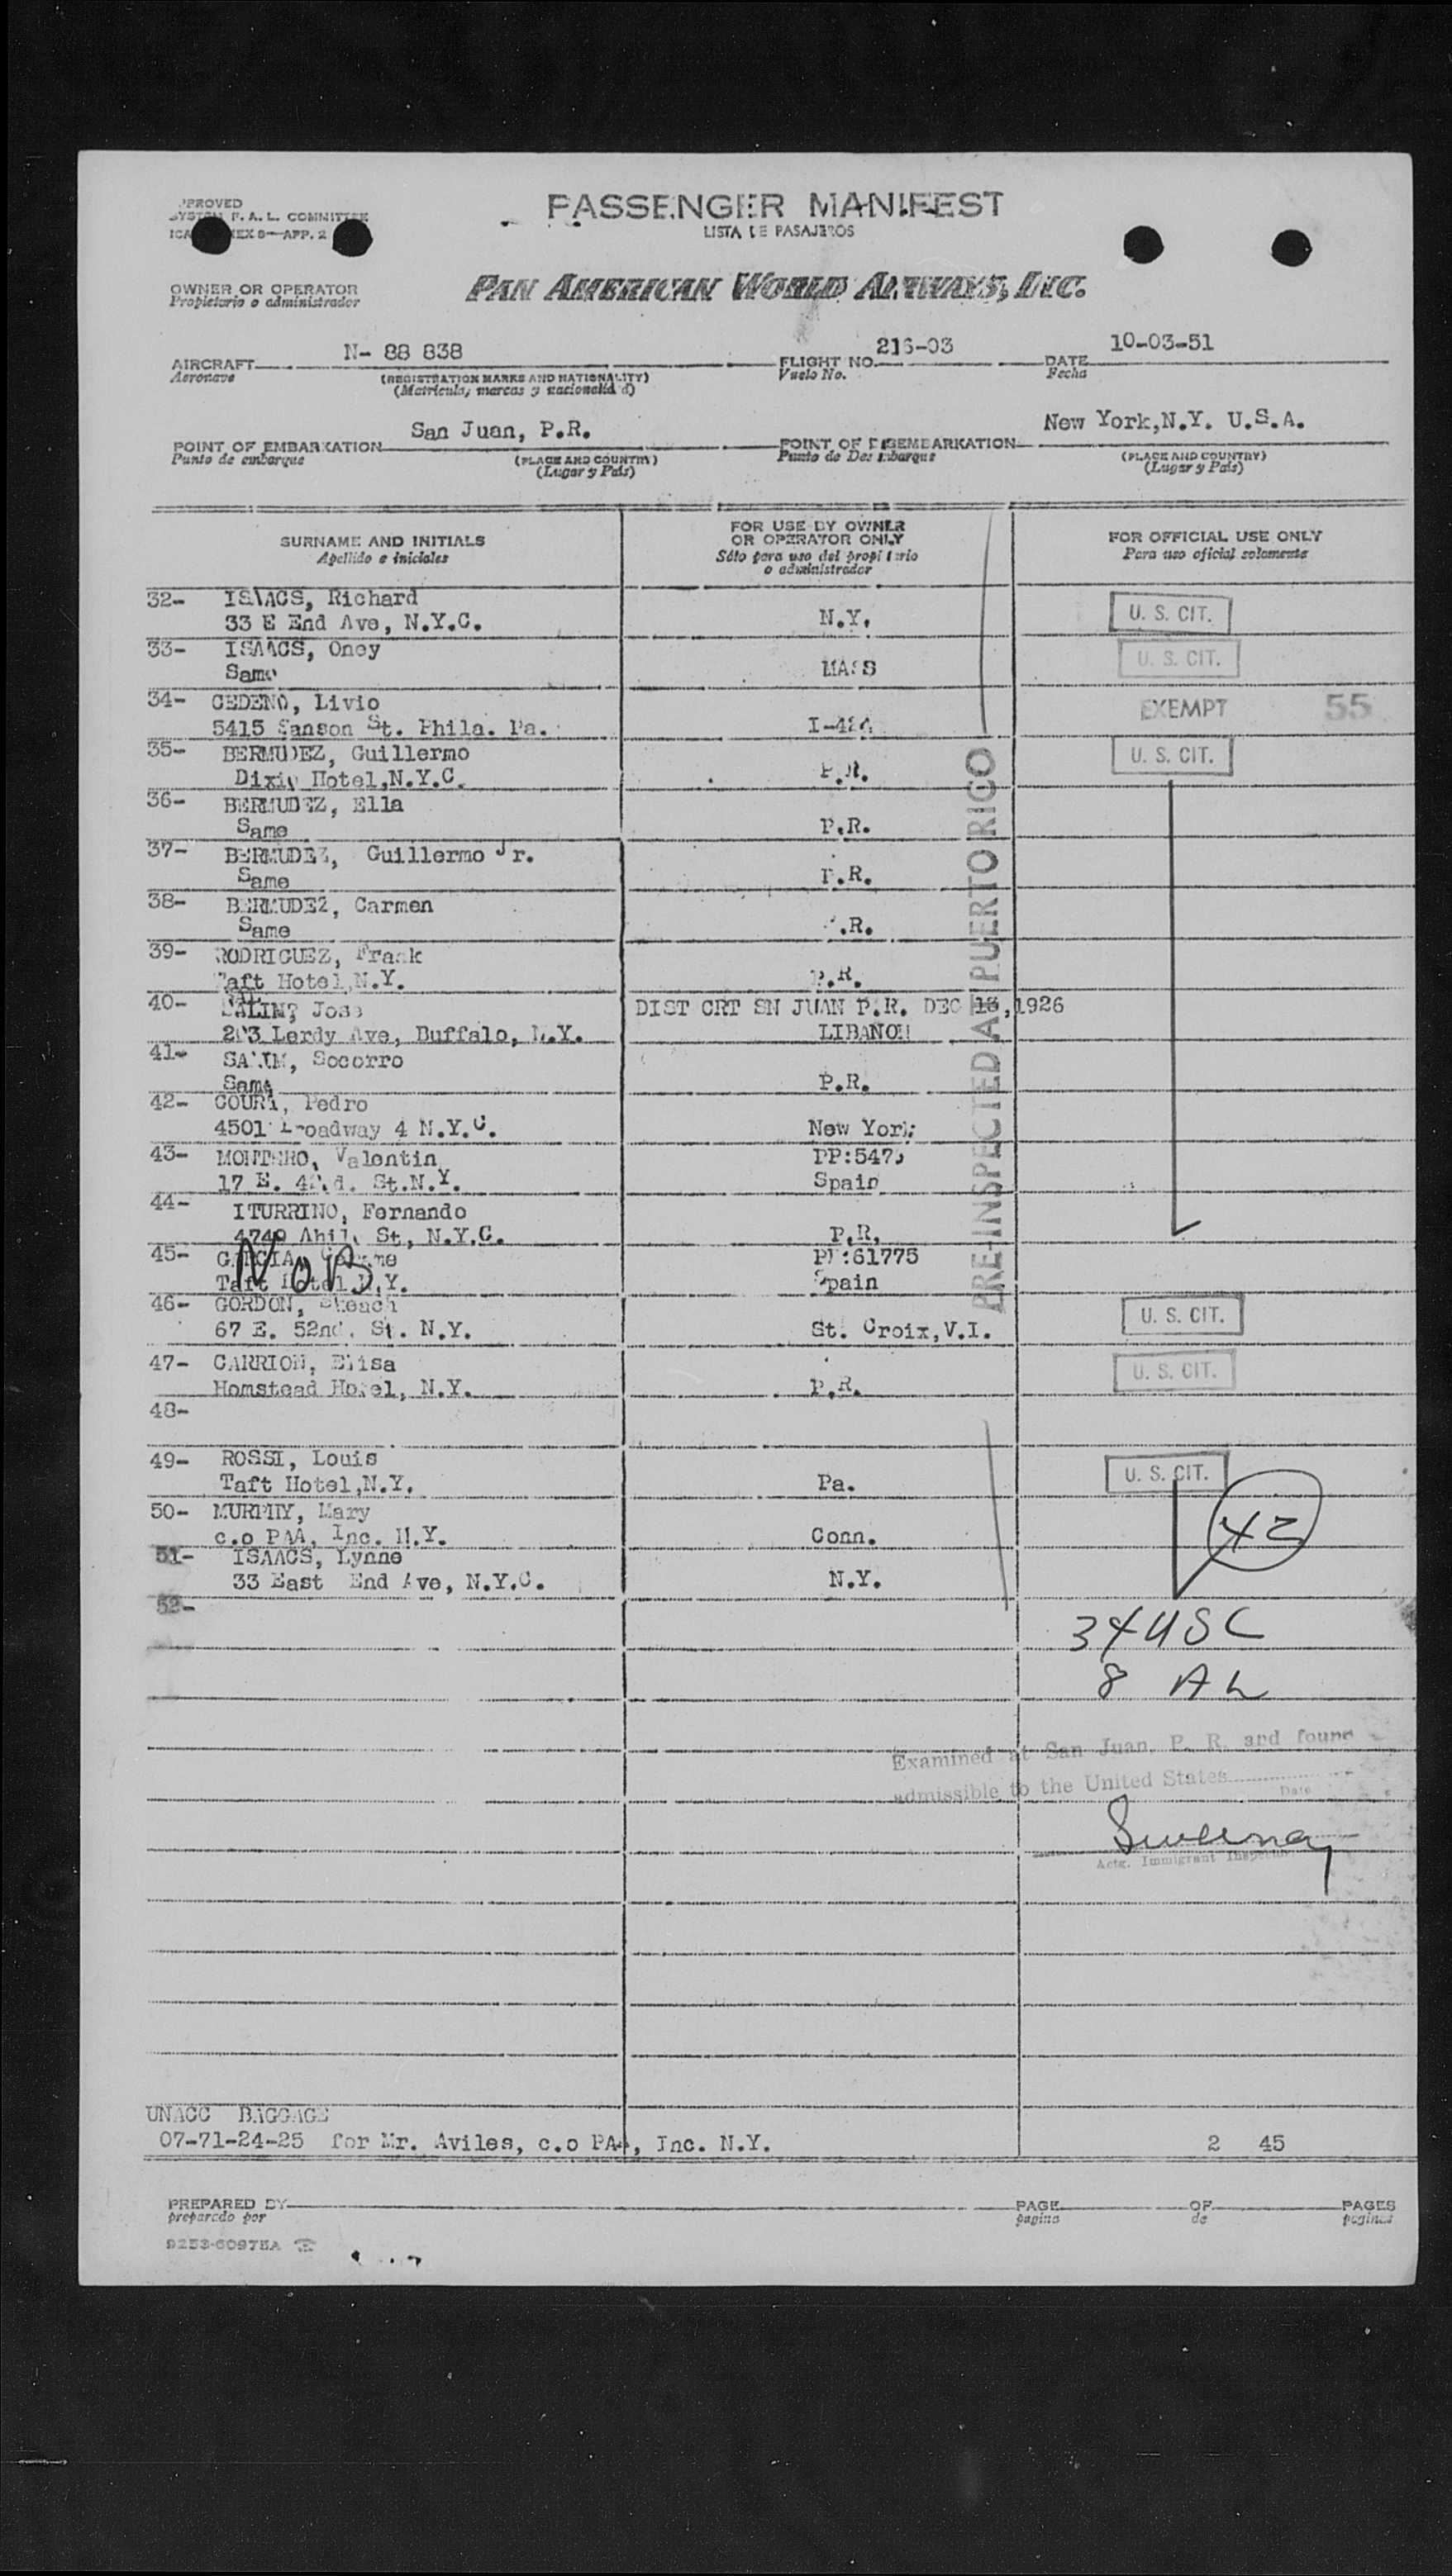 PASSENGER MANIFEST
LISTA DE PASAJEROS
OWNER OR OPERATOR
Propietario o administrador
PAN AMERICAN WORLD AIRWAYS, INC.
AIRCRAFT N- 88 838 FLIGHT NO. 216-03 DATE 10-03-51
Aeronave (REGISTRATION MARKS AND NATIONALITY) Vuelo No. Fecha
(Matricula, marcas y nacionalidad)
POINT OF EMBARKATION San Juan, P.R. POINT OF DISEMBARKATION New York,N.Y. U.S.A.
Punto de embarque (PLACE AND COUNTRY) Punto de Desembarque (PLACE AND COUNTRY)
(Lugar y País) (Lugar y País)
SURNAME AND INITIALS FOR USE BY OWNER OR OPERATOR ONLY FOR OFFICIAL USE ONLY
Apellido e iniciales Sólo para uso del propietario o administrador Para uso oficial solamente
32- ISAACS, Richard
33 E End Ave, N.Y.C. N.Y. U. S. CIT.
33- ISAACS, Oney
Same MASS U. S. CIT.
34- CEDENO, Livio EXEMPT 55
5415 Sanson St. Phila. Pa.
35- BERMUDEZ, Guillermo U. S. CIT.
Dixie Hotel,N.Y.C. P.R.
36- BERMUDEZ, Ella
Same P.R.
37- BERMUDEZ, Guillermo Jr.
Same P.R.
38- BERMUDEZ, Carmen
Same P.R.
39- RODRIGUEZ, Frank
Taft Hotel,N.Y. P.R.
40- Jose DIST CRT SN JUAN P.R. DEC 13,1926
Ave, Buffalo, N.Y. LIBANON
41- Socorro
Same P.R.
42- Pedro
4501 Broadway 4 N.Y.C. New York
43- MONTERO, Valentin
17 E. 42nd. St.N.Y. Spain
44- ITURRINO, Fernando
St, N.Y.C. P.R.
45- GARCIA PP:61775
Taft Hotel N.Y. Spain
NOB
46- GORDON,
67 E. 52nd. St. N.Y. St. Croix,V.I. U. S. CIT.
47- CARRION, Elisa
Homstead Hotel, N.Y. P.R. U. S. CIT.
48-
49- ROSSI, Louis
Taft Hotel,N.Y. Pa. U. S. CIT.
50- MURPHY, Mary
c.o PAA, Inc. N.Y. Conn. 42
51- ISAACS, Lynne
33 East End Ave, N.Y.C. N.Y.
52-
PRE-INSPECTED AT PUERTO RICO
34 USC
8 AL
Examined at San Juan, P. R. and found
admissible to the United States
Date
Actg. Immigrant Inspector
UNACC BAGGAGE
07-71-24-25 for Mr. Aviles, c.o PAA, Inc. N.Y. 2 45
PREPARED BY PAGE OF PAGES
preparado por pagina de paginas